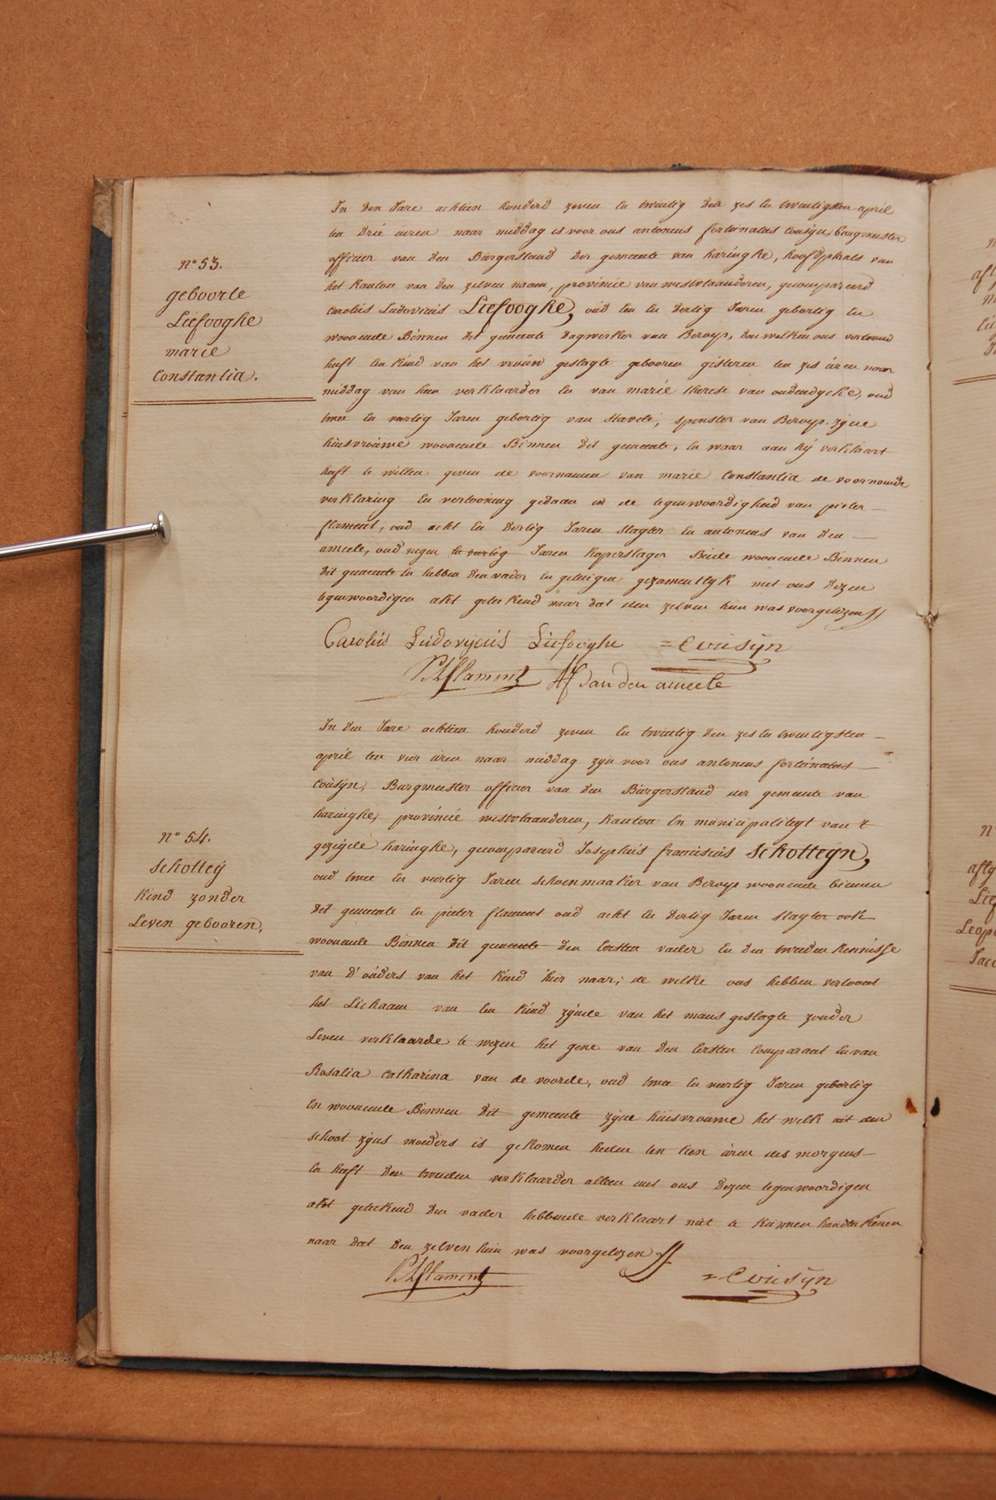 N° 53.
geboorte
Liefooghe
marie
Constantia.
In den Jare achtien honderd zeven en twintig den zes en twintigsten april
ten drie uren naar middag is voor ons antonius fortunatus Cousyn, burgmeester
officier van den Burgerstand der gemeente van haringhe, hoofdplaats van
het kanton van den zelven naam, provincie van westvlaanderen, gecompareerd
Carolus Ludovicus Liefooghe, oud een en dertig Jaren gebortig en
woonende Binnen dit gemeente dagwerker van Beroep, den welken ons vertoond
heeft een kind van het vrouw geslagte gebooren gisteren ten zes uren naar
middag van hem verklaarder en van marie therese van oudendycke, oud
twee en veertig Jaren gebortig van Stavele, spenster van Beroep zyne
huisvrouwe woonende Binnen dit gemeente, en waar aan hij verklaart
heeft te willen geven de voornamen van marie Constantia de voornoemde
verklaring en vertooning gedaan in de tegenwoordigheid van pieter
flament, oud acht en dertig Jaren slagter en antonius van den
ameele, oud negen en veertig Jaren koperslager Beide woonende Binnen
dit gemeente en hebben den vader en getuigen gezamentlyk met ons dezen
tegenwoordigen akt geteekend naar dat den zelven hun was voorgelezen
Carolus Ludovycus Liefooghe = Cousyn
P.A flament AF Van den ameele
N° 54.
Schotteÿ
kind zonder
Leven gebooren.
In den Jare achtien honderd zeven en twintig den zes en twintigsten
april ten vier uren naar middag zyn voor ons antonius fortunatus
Cousyn, Burgmeester officier van den Burgerstand der gemeente van
haringhe, provincie westvlaanderen, kanton en municipaliteyt van 't
gezegde haringhe, gecompareerd Josephus franciscus Schotteÿn,
oud twee en veertig Jaren schoenmaaker van Beroep woonende binnen
dit gemeente en pieter flament oud acht en dertig Jaren slagter ook
woonende Binnen dit gemeente den Eersten vader en den tweeden kennisse
van d'ouders van het kind hier naar; de welke ons hebben vertoont
het Lichaam van een kind zynde van het mans geslagte zonder
Leven verklaarde te wezen het gene van den Eersten Comparant en van
Rosalia Catharina van de voorde, oud twee en veertig Jaren gebortig
en woonende Binnen dit gemeente zyne huisvrouwe het welk uit den
schoot zyns moeders is gekomen heden ten tien uren des morgens
en heeft den tweeden verklaarder alleen met ons dezen tegenwoordigen
akt geteekend den vader hebbende verklaart niet te kunnen handteekenen
naar dat den zelven hun was voorgelezen
P.A flament = Cousyn